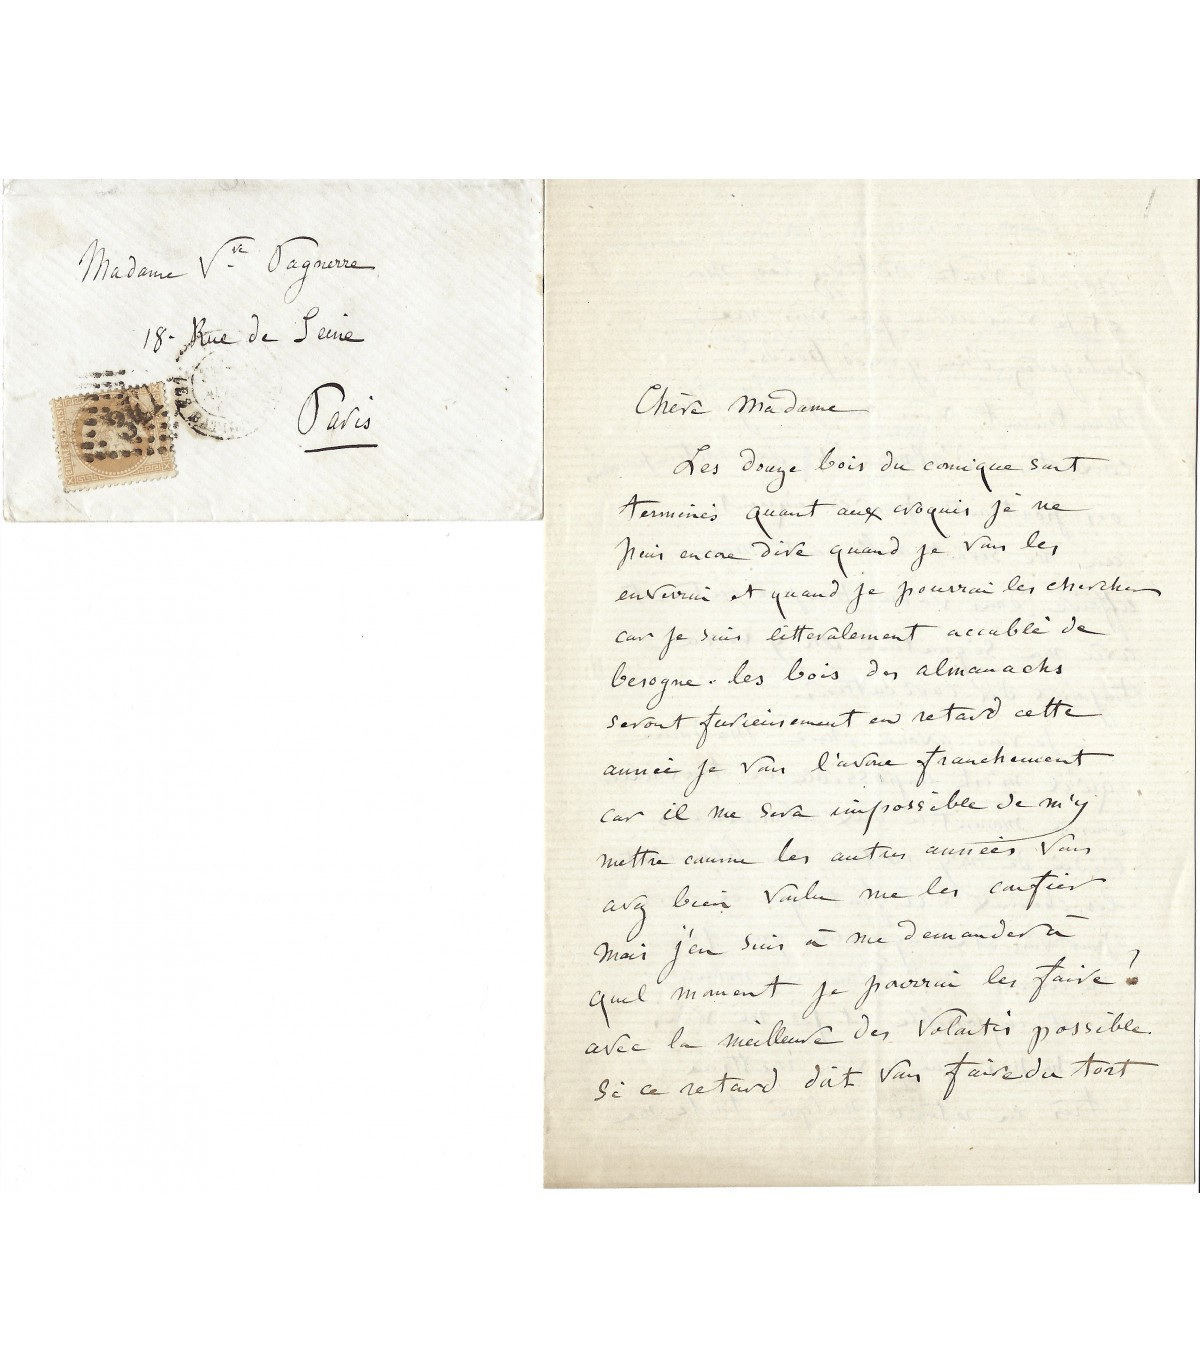 Madame Vve Pagnerre
18. Rue de Seine
Paris
Chère Madame
Les douze bois du comique sont
terminés quant aux croquis je ne
puis encore dire quand je vous les
enverrai et quand je pourrai les chercher
car je suis litteralement accablé de
besogne. les bois des almanachs
seront furieusement en retard cette
année je vous l'avoue franchement
car il me sera impossible de m'y
mettre comme les autres années vous
avez bien voulu me les confier
mais j'en suis à me demander à
quel moment je pourrai les faire!
avec la meilleure des volontés possible.
Si ce retard doit vous faire du tort